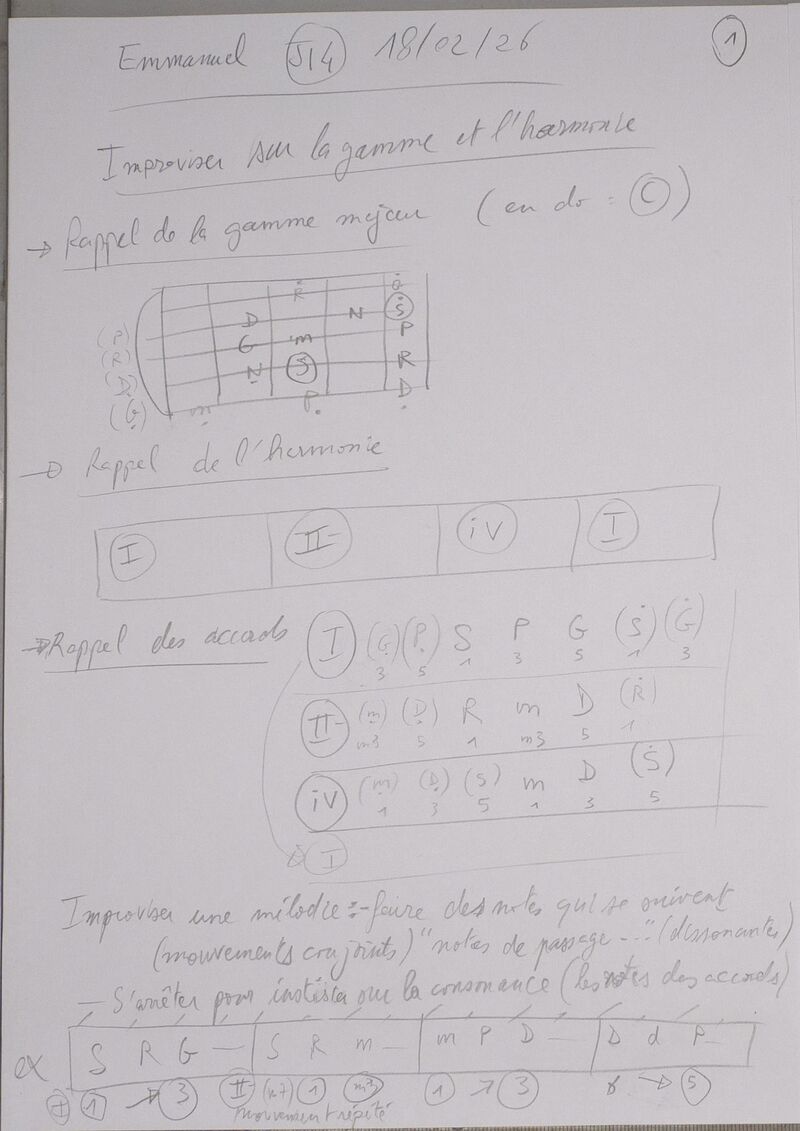 Emmanuel J14 18/02/26 1
Improviser sur la gamme et l'harmonie
→ Rappel de la gamme majeur (en do : C)
R G
D N S
(P) G m P
(R) N S R
(D) m P D
(G)
→ Rappel de l'harmonie
I II- iv I
→ Rappel des accords I (G) (P) S P G (S) (G)
3 5 1 3 5 1 3
II- (m) (D) R m D (R)
m3 5 1 m3 5 1
iv (m) (D) (S) m D (S)
1 3 5 1 3 5
I
Improviser une mélodie :- faire des notes qui se suivent
(mouvements conjoints) "notes de passage ---" (dissonantes)
— S'arrêter pour insister sur la consonance (les notes des accords)
ex S R G — S R m — m P D — D d P -
I 1 → 3 II- (m7) 1 m3 1 → 3 → 5
mouvement répété